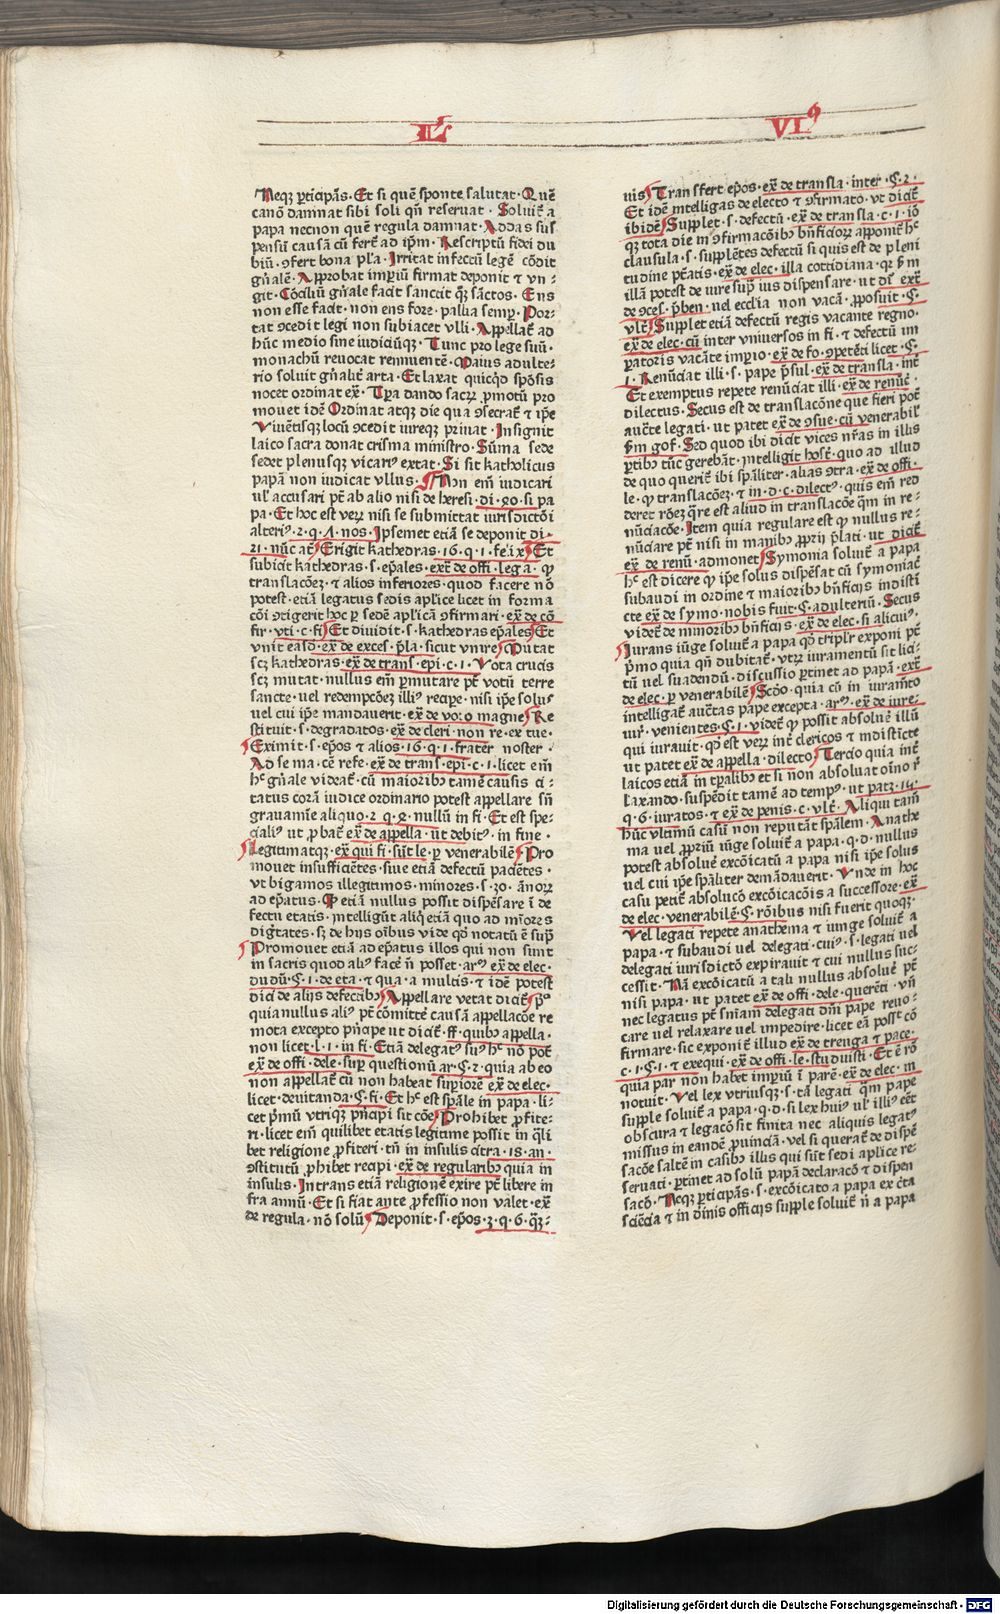 Lʳ VI⁹
Neqꝫ ꝑticipãs · Et si quē sponte salutat · Quē
canō damnat sibi soli qñ reseruat · Soluit᷒ a
papa necnon quē regula damnat · Addas sus
pensũ causã cũ fert᷒ ad ip̄m · Rescriptũ fidei du
biũ · ꝯfert bona pl̄a · Irritat infectũ legē cōdit
gñalē · Approbat imꝑiũ firmat deponit ⁊ vn⸗
git · Cōciliũ gñale facit sanctit qꝫ sãctos · Ens
non esse facit · non ens fore · pallia semꝑ · Por⸗
tat ꝯcedit legi non subiacet vlli · Appellat᷒ ad
hūc medio sine iudiciũqꝫ · Tunc pro lege suũ ·
monachũ reuocat rennuentē · Maius adulte⸗
rio soluit gñalit᷒ arta · Et laxat quicqd sponsis
nocet ordinat ex᷒ · Tꝑa dando sacrꝝ ꝓmotũ pro
mouet idē Ordinat atqꝫ die qua ꝯsecrat᷒ ⁊ ip̄e
Viuētisqꝫ locũ ꝯcedit iureqꝫ priuat · Insignit
laico sacra donat crisma ministro · Sũma sede
sedet plenusqꝫ vicari⁹ extat · Si sit katholicus
papã non iudicat vllus · Non em̄ iudicari
ul᷒ accusari pt᷒ ab alio nisi de heresi · di · 40 · si pa
pa · Et hoc est verꝝ nisi se submittat iurisdictōi
alteri⁹ · 2 · q · 7 · nos · Ipsemet etiã se deponit di ·
21 · nũc at᷒ Erigit kathedras · 16 · q · 1 · felix Et
subicit kathedras · s · ep̄ales · ext᷒ de offi · lega · ꝙ
translacōeꝫ · ⁊ alios inferiores · quod facere nō
potest · etiã legatus sedis apl̄ice licet in forma
cōi ꝯrigerit hoc ꝑ sedē apl̄icã ꝯfirmari · ex᷒ de cō
fir · vti · c · fi Et diuidit · s · kathedras ep̄ales Et
vnit easd᷒ · ex᷒ de exces · p̄la · sicut vnire Mutat
scꝫ kathedras · ex᷒ de trans · epi · c · 1 · Vota crucis
scꝫ mutat · nullus em̄ ꝑmutare pt᷒ votũ terre
sancte · vel redempcōeꝫ illi⁹ recipe · nisi ip̄e solus
vel cui ip̄e mandauerit · ex᷒ de voto magne Re
stituit · s · degradatos · ex᷒ de cleri · non re · ex tue ·
Eximit · s · ep̄os ⁊ alios · 16 · q · 1 · frater noster ·
Ad se ma · cē refe · ex᷒ de trans · epi · c · 1 · licet em̄
hᶜ gñale videat᷒ · cũ maiorib⁹ tamē causis ci⸗
tatus corã iudice ordinario potest appellare sñ
grauamīe aliquo · 2 q · 6 · nullũ in fi · Et est spe⸗
ciali⁹ ut ꝓbat᷒ ex᷒ de appella · ut debit⁹ · in fine ·
Legitimatqꝫ · ex᷒ qui fi · sũt le · ꝑ venerabilē Pro
mouet insufficiētes · siue etiã defectũ paciētes ·
vt bigamos illegitimos · minores · s · 30 · ãnoꝝ
ad ep̄atus · Mͥ etiã nullus possit dispēsare i᷒ de
fectu etatis · intelligũt aliq᷒ etiã quo ad mi᷒ores
dig᷒tates · sꝫ de hys oi᷒bus vide qd̄ notatũ ē sup᷒
Promouet etiã ad ep̄atus illos qui non sunt
in sacris quod ali⁹ facē n̄ posset · ar⁹ · ex᷒ de elec ·
dudũ · §· 1 · de eta · ⁊ qua · a multis · ⁊ idē potest
dici de alijs defectib⁹ Appellare vetat dicit᷒ Pᵒ
quia nullus ali⁹ pt᷒ cōmittē causã appellacōe re
mota excepto p̄ncipe ut dicit᷒ · ff · quib⁹ appella ·
non licet · l · 1 · in fi · Etiã delegat⁹ su⁹ hᶜ nō pot᷒
ex᷒ de offi · dele · suꝑ questionũ ar · §· 2 · quia ab eo
non appellat᷒ cũ non habeat suꝑiorē ex᷒ de elec ·
licet · deuitanda · §· fi · Et hᶜ est sp̄ale in papa · li⸗
cet p̄mũ vtriqꝫ p̄ncipi sit cōe Prohibet ꝓfite⸗
ri · licet em̄ quilibet etatis legitime possit in q̄li
bet religione ꝓfiteri · tñ in insulis citra · 18 · an ·
ꝯstitutũ ꝓhibet recipi · ex᷒ de regularib⁹ quia in
insulis · Intrans etiã religionē exire pt᷒ libere in
fra annũ · Et si fiat ante ꝓfessio non valet · ex᷒
de regula · nō solũ Deponit · s · ep̄os · 3 · q · 6 · q̄ꝫ⸗
uis Transfert ep̄os · ex᷒ de transla · inter · §· 2 ·
Et idē intelligas de electo ⁊ ꝯfirmato · vt dicit᷒
ibidē Supplet · s · defectũ · ex᷒ de transla · c · 1 · iō
qꝫ tota die in ꝯfirmacōib⁹ bn̄ficioꝝ apponit᷒ hᶜ
clausula · s · supplētes defectũ si quis est de pleni
tudine pt᷒atis · ex᷒ de elec · illa cottidiana · qꝛ ẜm
illã potest de iure sup᷒ ius dispensare · ut dⁱ ext᷒
de ꝯces · p̄ben · vel ecclia non vacã · ꝓposuit · §·
vlt᷒ Supplet etiã defectũ regis vacante regno ·
ex᷒ de elec · cũ inter vniuersos in fi · ⁊ defectũ im
ꝑatoris vacãte imꝑio · ex᷒ de fo · ꝯpetēti licet · §·
1 · Renũciat illi · s · pape p̄sul · ex᷒ de transla · int᷒
Et exemptus repete renũciat illi · ex᷒ de renũc᷒ ·
dilectus · Secus est de translacōne que fieri pot᷒
auc̄te legati · ut patet ex᷒ de ꝯsue · cũ venerabil᷒
ẜm gof · Sed quod ibi dicit vices nr̄as in illis
ꝑtib⁹ tūc gerebãt · intelligit host᷒ · quo ad illud
de quo querit᷒ ibi sp̄aliter · alias ꝯtra · ex᷒ de offi ·
le · ꝙ translacōeꝫ · ⁊ in · d · c · dilect⁹ · quis em̄ red
deret rōeꝫ q̄re est aliud in translacōe q̄m in re⸗
nũciacōe · Item quia regulare est ꝙ nullus re⸗
nũciare pt᷒ nisi in manib⁹ ꝓprij p̄lati · ut dicit᷒
ex᷒ de renũ · admonet Symonia soluit᷒ a papa
hᶜ est dicere ꝙ ip̄e solus dispēsat cũ symoniac᷒
subaudi in ordine ⁊ maiorib⁹ bn̄ficijs indisti᷒
cte ex᷒ de symo · nobis fuit · §· adulteriũ · Secus
videt᷒ de minorib⁹ bn̄ficijs · ex᷒ de elec · si alicui⁹ ·
Iurans iũge soluit᷒ a papa qd̄ triplr̄ exponi pt᷒
p̄mo quia qñ dubitat᷒ · vtrꝫ iuramentũ sit lici⸗
tũ vel suadendũ · discussio ꝑtinet ad papã · ext᷒
de elec · ꝑ venerabilē Sco᷒o · quia cũ in iuram᷒to
intelligat᷒ auc̄tas pape excepta · ar⁹ · ex᷒ de iure⸗
iur᷒ · venientes · §· 1 · videt᷒ ꝙ possit absoluē illũ
qui iurauit · qd̄ est verꝝ int᷒ clericos ⁊ indisti᷒cte
ut patet ex᷒ de appella · dilecto Tercio quia int᷒
laicos etiã in tꝑalib⁹ et si non absoluat oi᷒no r᷒
laxando · suspēdit tamē ad temp⁹ · ut patꝫ · 15 ·
q · 6 · iuratos · ⁊ ex᷒ de penis · c · vlt᷒ · Aliqui tam᷒
hūc vltimũ casũ non reputãt sp̄alem · Anathe
ma vel ꝓpriũ iũge soluit᷒ a papa · q · d · nullus
potest absoluē excōicatũ a papa nisi ip̄e solus
vel cui ip̄e sp̄aliter demãdauerit · Vnde in hoc
casu petit᷒ absolucō excōicacōis a successore · ex᷒
de elec · venerabilē · §· rōibus nisi fuerit quoqꝫ ·
Vel legati repete anathema ⁊ iunge soluit᷒ a
papa · ⁊ subaudi vel delegati · cui⁹ · s · legati vel
delegati iurisdictō expirauit ⁊ cui nullus suc⸗
cessit · Nã excōicatũ a tali nullus absoluē pt᷒
nisi papa · ut patet ex᷒ de offi · dele · querēti · vñ
nec legatus pt᷒ sn̄iam delegati dn̄i pape reuo⸗
care vel relaxare vel impedire · licet eã posst᷒ cō
firmare · sic exponit᷒ illud ex᷒ de treuga ⁊ pace ·
c · 1 · §· 1 · ⁊ exequi · ex᷒ de offi · le · studuisti · Et ē rō
quia par non habet imꝑiũ i᷒ parē · ex᷒ de elec · in
notuit · Vel lex vtriusqꝫ · s · tã legati q̄m pape
supple soluit᷒ a papa · q · d · si lex hui⁹ ul᷒ illi⁹ eēt
obscura ⁊ legacō sit finita nec aliquis legat⁹
missus in eandē ꝓuinciã · vel si querat᷒ de dispē
sacōe saltē in casib⁹ illis qui sũt sedi aplice re⸗
seruati · ꝑtinet ad solũ papã declaracō ⁊ dispen
sacō · Neqꝫ ꝑticipãs · s · excōicato a papa ex c̄ta
sciēcia ⁊ in diuinis officijs supple soluit᷒ n̄ a papa
Digitalisierung gefördert durch die Deutsche Forschungsgemeinschaft - DFG